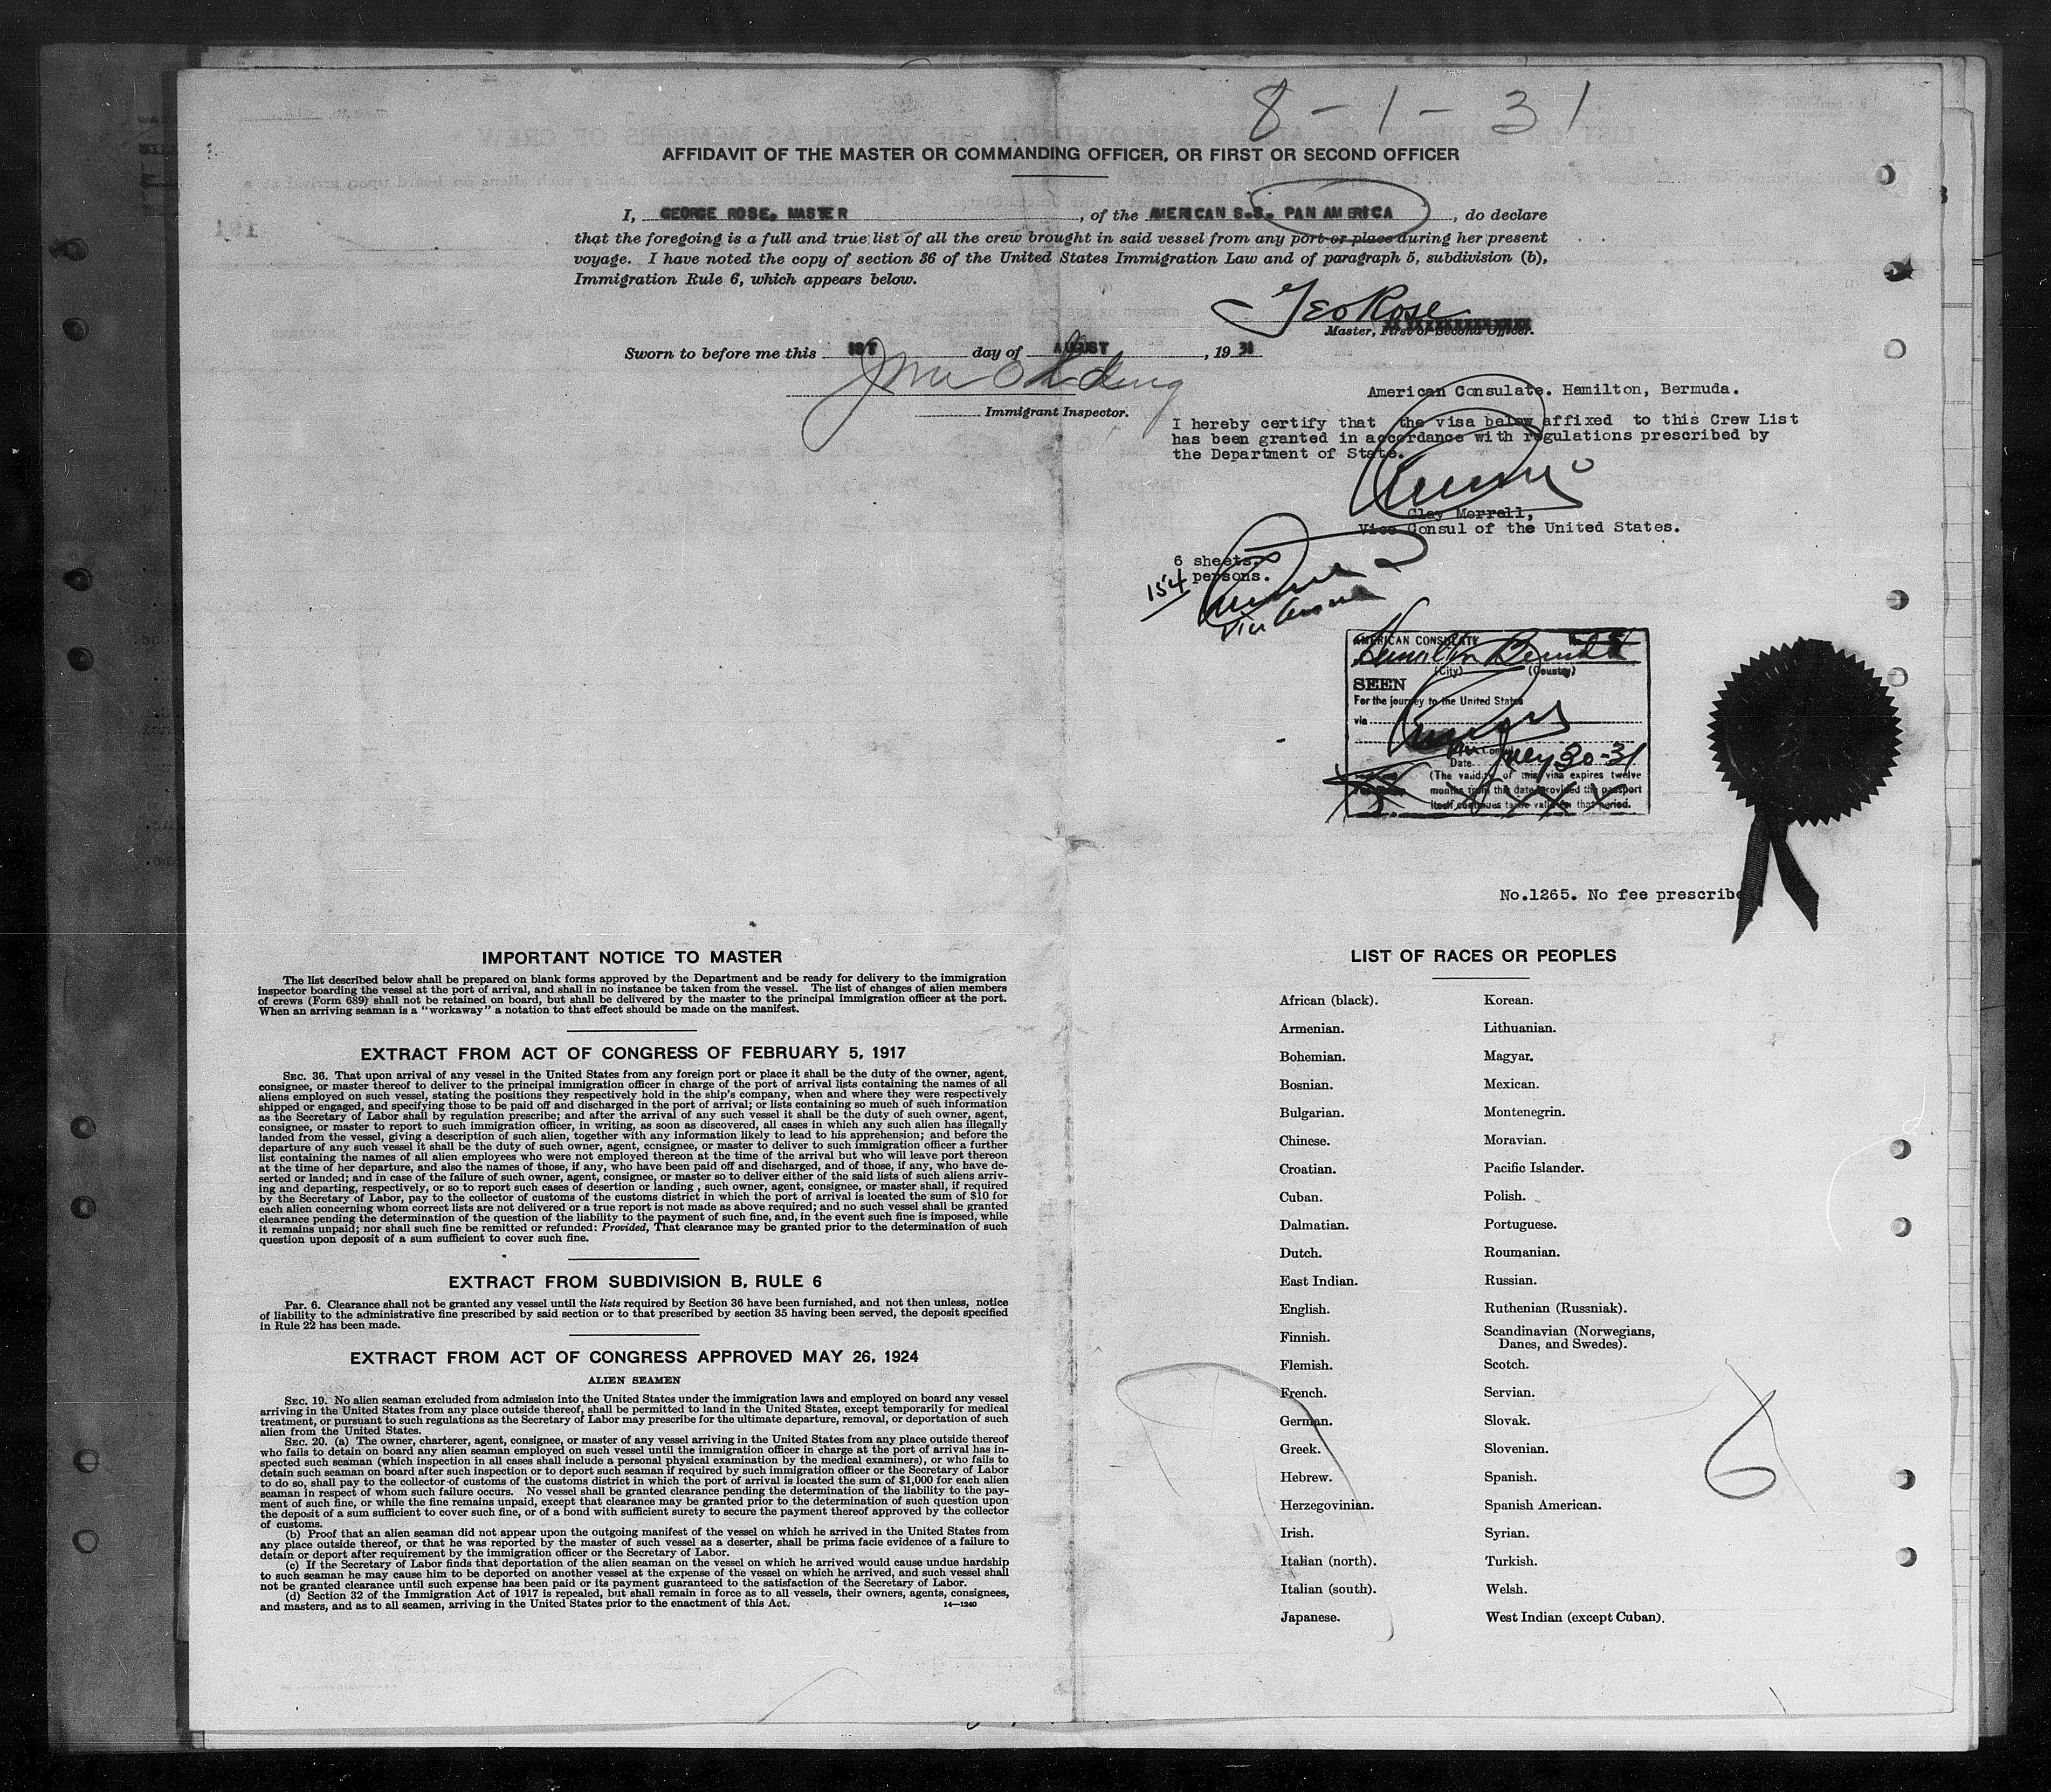 8-1-31
AFFIDAVIT OF THE MASTER OR COMMANDING OFFICER, OR FIRST OR SECOND OFFICER
I, GEORGE ROSE, MASTER, of the AMERICAN S.S. PAN AMERICA, do declare
that the foregoing is a full and true list of all the crew brought in said vessel from any port or place during her present
voyage. I have noted the copy of section 36 of the United States Immigration Law and of paragraph 5, subdivision (b),
Immigration Rule 6, which appears below.
Geo Rose
Master, First or Second Officer.
Sworn to before me this 1ST day of AUGUST, 1931
Immigrant Inspector.
American Consulate. Hamilton, Bermuda.
I hereby certify that the visa below affixed to this Crew List
has been granted in accordance with regulations prescribed by
the Department of State.
Clay Merrell,
Vice Consul of the United States.
6 sheets.
154 persons.
Vice Consul
AMERICAN CONSULATE
Hamilton Bermuda
(City) (Country)
SEEN
For the journey to the United States
via
Date July 30-31
(The validity of this visa expires twelve
months from this date provided the passport
itself continues to be valid for that period.
No.1265. No fee prescribe
IMPORTANT NOTICE TO MASTER
The list described below shall be prepared on blank forms approved by the Department and be ready for delivery to the immigration
inspector boarding the vessel at the port of arrival, and shall in no instance be taken from the vessel. The list of changes of alien members
of crews (Form 689) shall not be retained on board, but shall be delivered by the master to the principal immigration officer at the port.
When an arriving seaman is a "workaway" a notation to that effect should be made on the manifest.
EXTRACT FROM ACT OF CONGRESS OF FEBRUARY 5, 1917
SEC. 36. That upon arrival of any vessel in the United States from any foreign port or place it shall be the duty of the owner, agent,
consignee, or master thereof to deliver to the principal immigration officer in charge of the port of arrival lists containing the names of all
aliens employed on such vessel, stating the positions they respectively hold in the ship's company, when and where they were respectively
shipped or engaged, and specifying those to be paid off and discharged in the port of arrival; or lists containing so much of such information
as the Secretary of Labor shall by regulation prescribe; and after the arrival of any such vessel it shall be the duty of such owner, agent,
consignee, or master to report to such immigration officer, in writing, as soon as discovered, all cases in which any such alien has illegally
landed from the vessel, giving a description of such alien, together with any information likely to lead to his apprehension; and before the
departure of any such vessel it shall be the duty of such owner, agent, consignee, or master to deliver to such immigration officer a further
list containing the names of all alien employees who were not employed thereon at the time of the arrival but who will leave port thereon
at the time of her departure, and also the names of those, if any, who have been paid off and discharged, and of those, if any, who have de-
serted or landed; and in case of the failure of such owner, agent, consignee, or master so to deliver either of the said lists of such aliens arriv-
ing and departing, respectively, or so to report such cases of desertion or landing, such owner, agent, consignee, or master shall, if required
by the Secretary of Labor, pay to the collector of customs of the customs district in which the port of arrival is located the sum of $10 for
each alien concerning whom correct lists are not delivered or a true report is not made as above required; and no such vessel shall be granted
clearance pending the determination of the question of the liability to the payment of such fine, and, in the event such fine is imposed, while
it remains unpaid; nor shall such fine be remitted or refunded: Provided, That clearance may be granted prior to the determination of such
question upon deposit of a sum sufficient to cover such fine.
EXTRACT FROM SUBDIVISION B, RULE 6
Par. 6. Clearance shall not be granted any vessel until the lists required by Section 36 have been furnished, and not then unless, notice
of liability to the administrative fine prescribed by said section or to that prescribed by section 35 having been served, the deposit specified
in Rule 22 has been made.
EXTRACT FROM ACT OF CONGRESS APPROVED MAY 26, 1924
ALIEN SEAMEN
SEC. 19. No alien seaman excluded from admission into the United States under the immigration laws and employed on board any vessel
arriving in the United States from any place outside thereof, shall be permitted to land in the United States, except temporarily for medical
treatment, or pursuant to such regulations as the Secretary of Labor may prescribe for the ultimate departure, removal, or deportation of such
alien from the United States.
SEC. 20. (a) The owner, charterer, agent, consignee, or master of any vessel arriving in the United States from any place outside thereof
who fails to detain on board any alien seaman employed on such vessel until the immigration officer in charge at the port of arrival has in-
spected such seaman (which inspection in all cases shall include a personal physical examination by the medical examiners), or who fails to
detain such seaman on board after such inspection or to deport such seaman if required by such immigration officer or the Secretary of Labor
to do so, shall pay to the collector of customs of the customs district in which the port of arrival is located the sum of $1,000 for each alien
seaman in respect of whom such failure occurs. No vessel shall be granted clearance pending the determination of the liability to the pay-
ment of such fine, or while the fine remains unpaid, except that clearance may be granted prior to the determination of such question upon
the deposit of a sum sufficient to cover such fine, or of a bond with sufficient surety to secure the payment thereof approved by the collector
of customs.
(b) Proof that an alien seaman did not appear upon the outgoing manifest of the vessel on which he arrived in the United States from
any place outside thereof, or that he was reported by the master of such vessel as a deserter, shall be prima facie evidence of a failure to
detain or deport after requirement by the immigration officer or the Secretary of Labor.
(c) If the Secretary of Labor finds that deportation of the alien seaman on the vessel on which he arrived would cause undue hardship
to such seaman he may cause him to be deported on another vessel at the expense of the vessel on which he arrived, and such vessel shall
not be granted clearance until such expense has been paid or its payment guaranteed to the satisfaction of the Secretary of Labor.
(d) Section 32 of the Immigration Act of 1917 is repealed, but shall remain in force as to all vessels, their owners, agents, consignees,
and masters, and as to all seamen, arriving in the United States prior to the enactment of this Act.
14—1240
LIST OF RACES OR PEOPLES
African (black). Korean.
Armenian. Lithuanian.
Bohemian. Magyar.
Bosnian. Mexican.
Bulgarian. Montenegrin.
Chinese. Moravian.
Croatian. Pacific Islander.
Cuban. Polish.
Dalmatian. Portuguese.
Dutch. Roumanian.
East Indian. Russian.
English. Ruthenian (Russniak).
Finnish. Scandinavian (Norwegians,
Danes, and Swedes).
Flemish. Scotch.
French. Servian.
German. Slovak.
Greek. Slovenian.
Hebrew. Spanish.
Herzegovinian. Spanish American.
Irish. Syrian.
Italian (north). Turkish.
Italian (south). Welsh.
Japanese. West Indian (except Cuban).
6